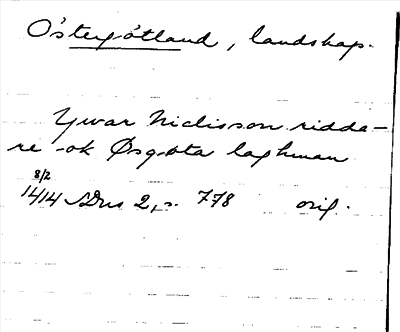 Östergötland, landskap.
Ywar Niclisson ridda-
re ok Øsgøta laghman
8/2
1414 SDns 2, s. 778 orig.